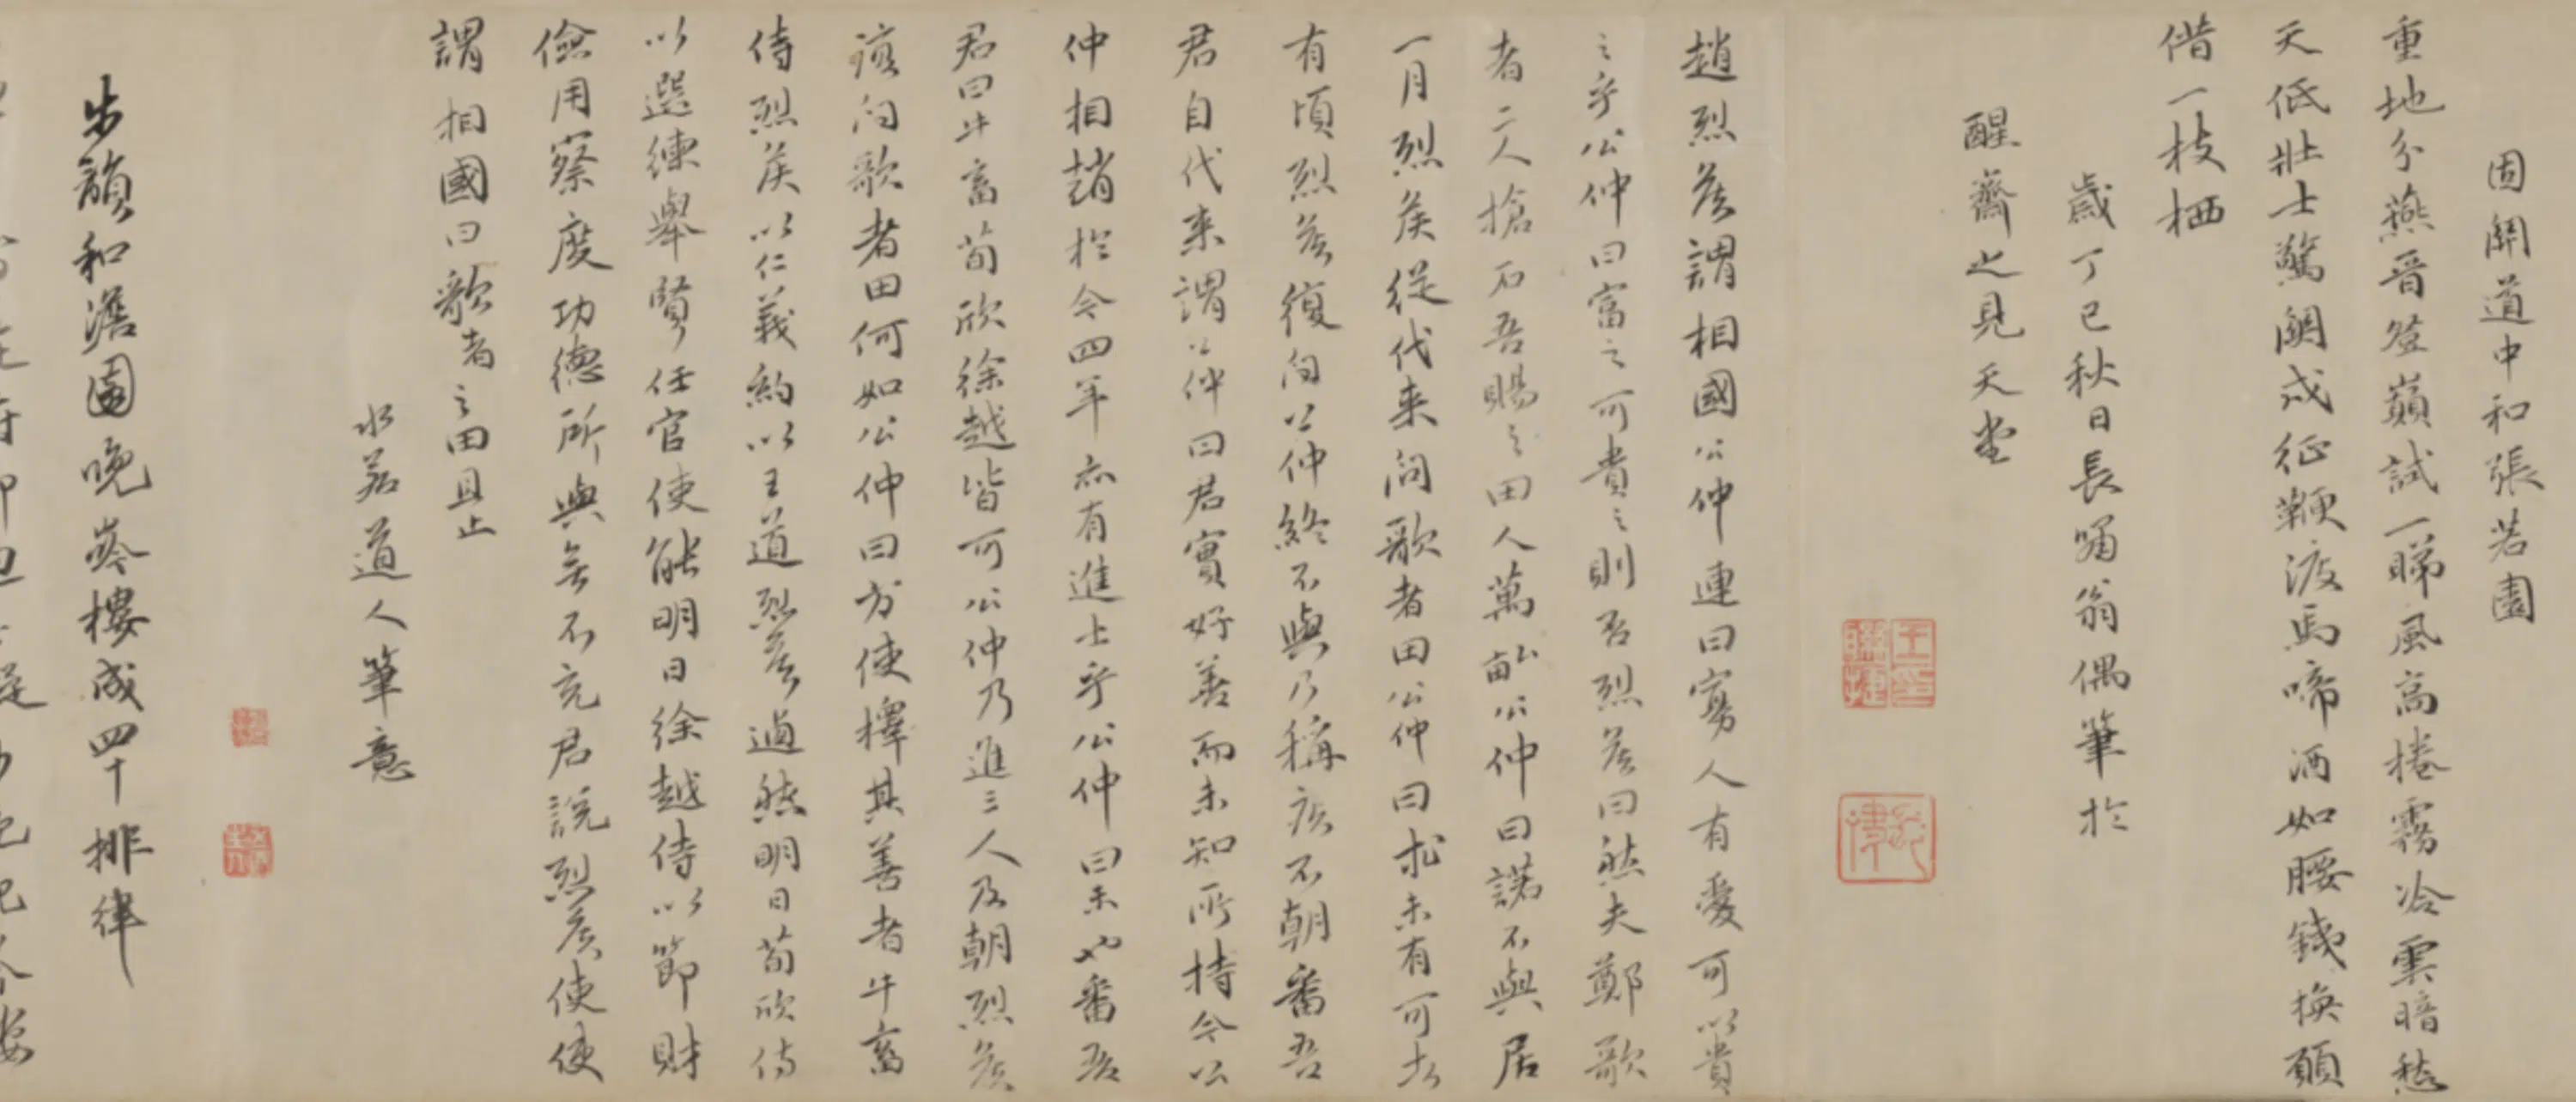 固關道中和張若園
重地分燕晉登巔試一睇風高捲霧冷雲暗愁
天低壯士驚關戍征鞭渡馬啼酒如腰錢換願
借一枝栖
歲丁巳秋日長嘯翁偶筆於
醒齋之見天堂
趙烈侯謂相國公仲連曰寡人有愛可以貴
之乎公仲曰富之可貴之則否烈侯曰然夫鄭歌
者二人槍石吾賜之田人萬畝公仲曰諾不與居
一月烈侯從代来問歌者田公仲曰求未有可者
有頃烈侯復問公仲終不與乃稱疾不朝番吾
君自代来謂公仲曰君實好善而未知所持今公
仲相趙於今四年亦有進士乎公仲曰未也番吾
君曰牛畜荀欣徐越皆可公仲乃進三人及朝烈侯
復問歌者田何如公仲曰方使擇其善者牛畜
侍烈侯以仁義約以王道烈侯逌然明日荀欣侍
以選練舉賢任官使能明日徐越侍以節財
儉用察度功德所與無不充君說烈侯使使
謂相國曰歌者之田且止
水若道人筆意
步韻和澹園晚崟樓成四十排律